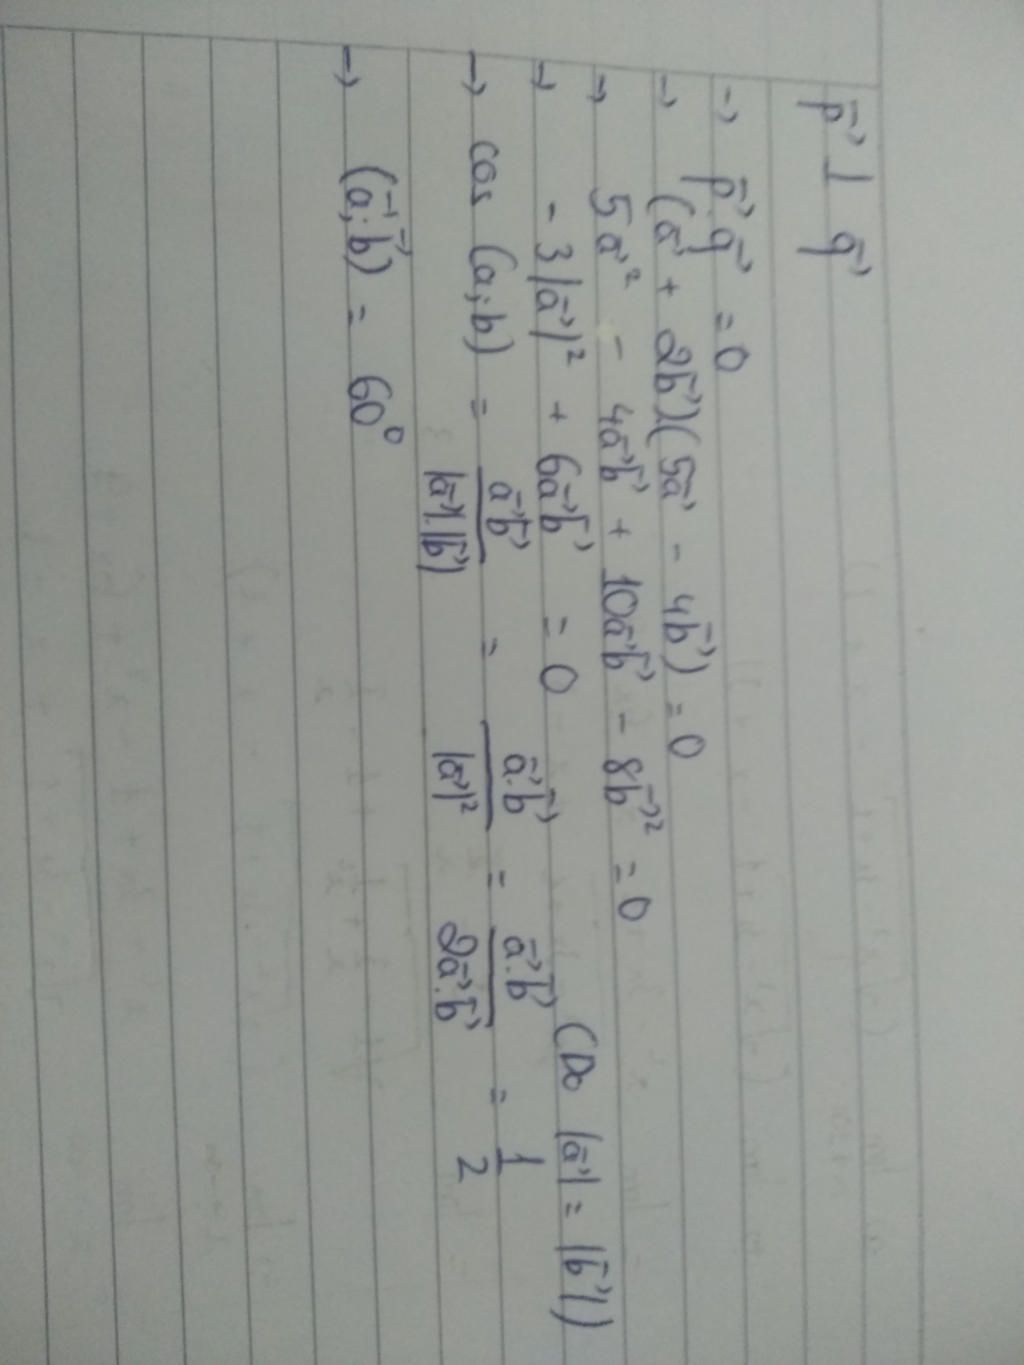 p⃗ ⊥ q⃗
→ p⃗.q⃗ = 0
→ (a⃗ + 2b⃗)(5a⃗ - 4b⃗) = 0
→ 5a⃗² - 4a⃗b⃗ + 10a⃗b⃗ - 8b⃗² = 0
→ - 3|a⃗|² + 6a⃗b⃗ = 0 (Do |a⃗| = |b⃗|)
→ cos (a;b) = a⃗b⃗/|a⃗|.|b⃗| = a⃗.b⃗/|a⃗|² = a⃗.b⃗/2a⃗.b⃗ = 1/2
→ (a⃗;b⃗) = 60°